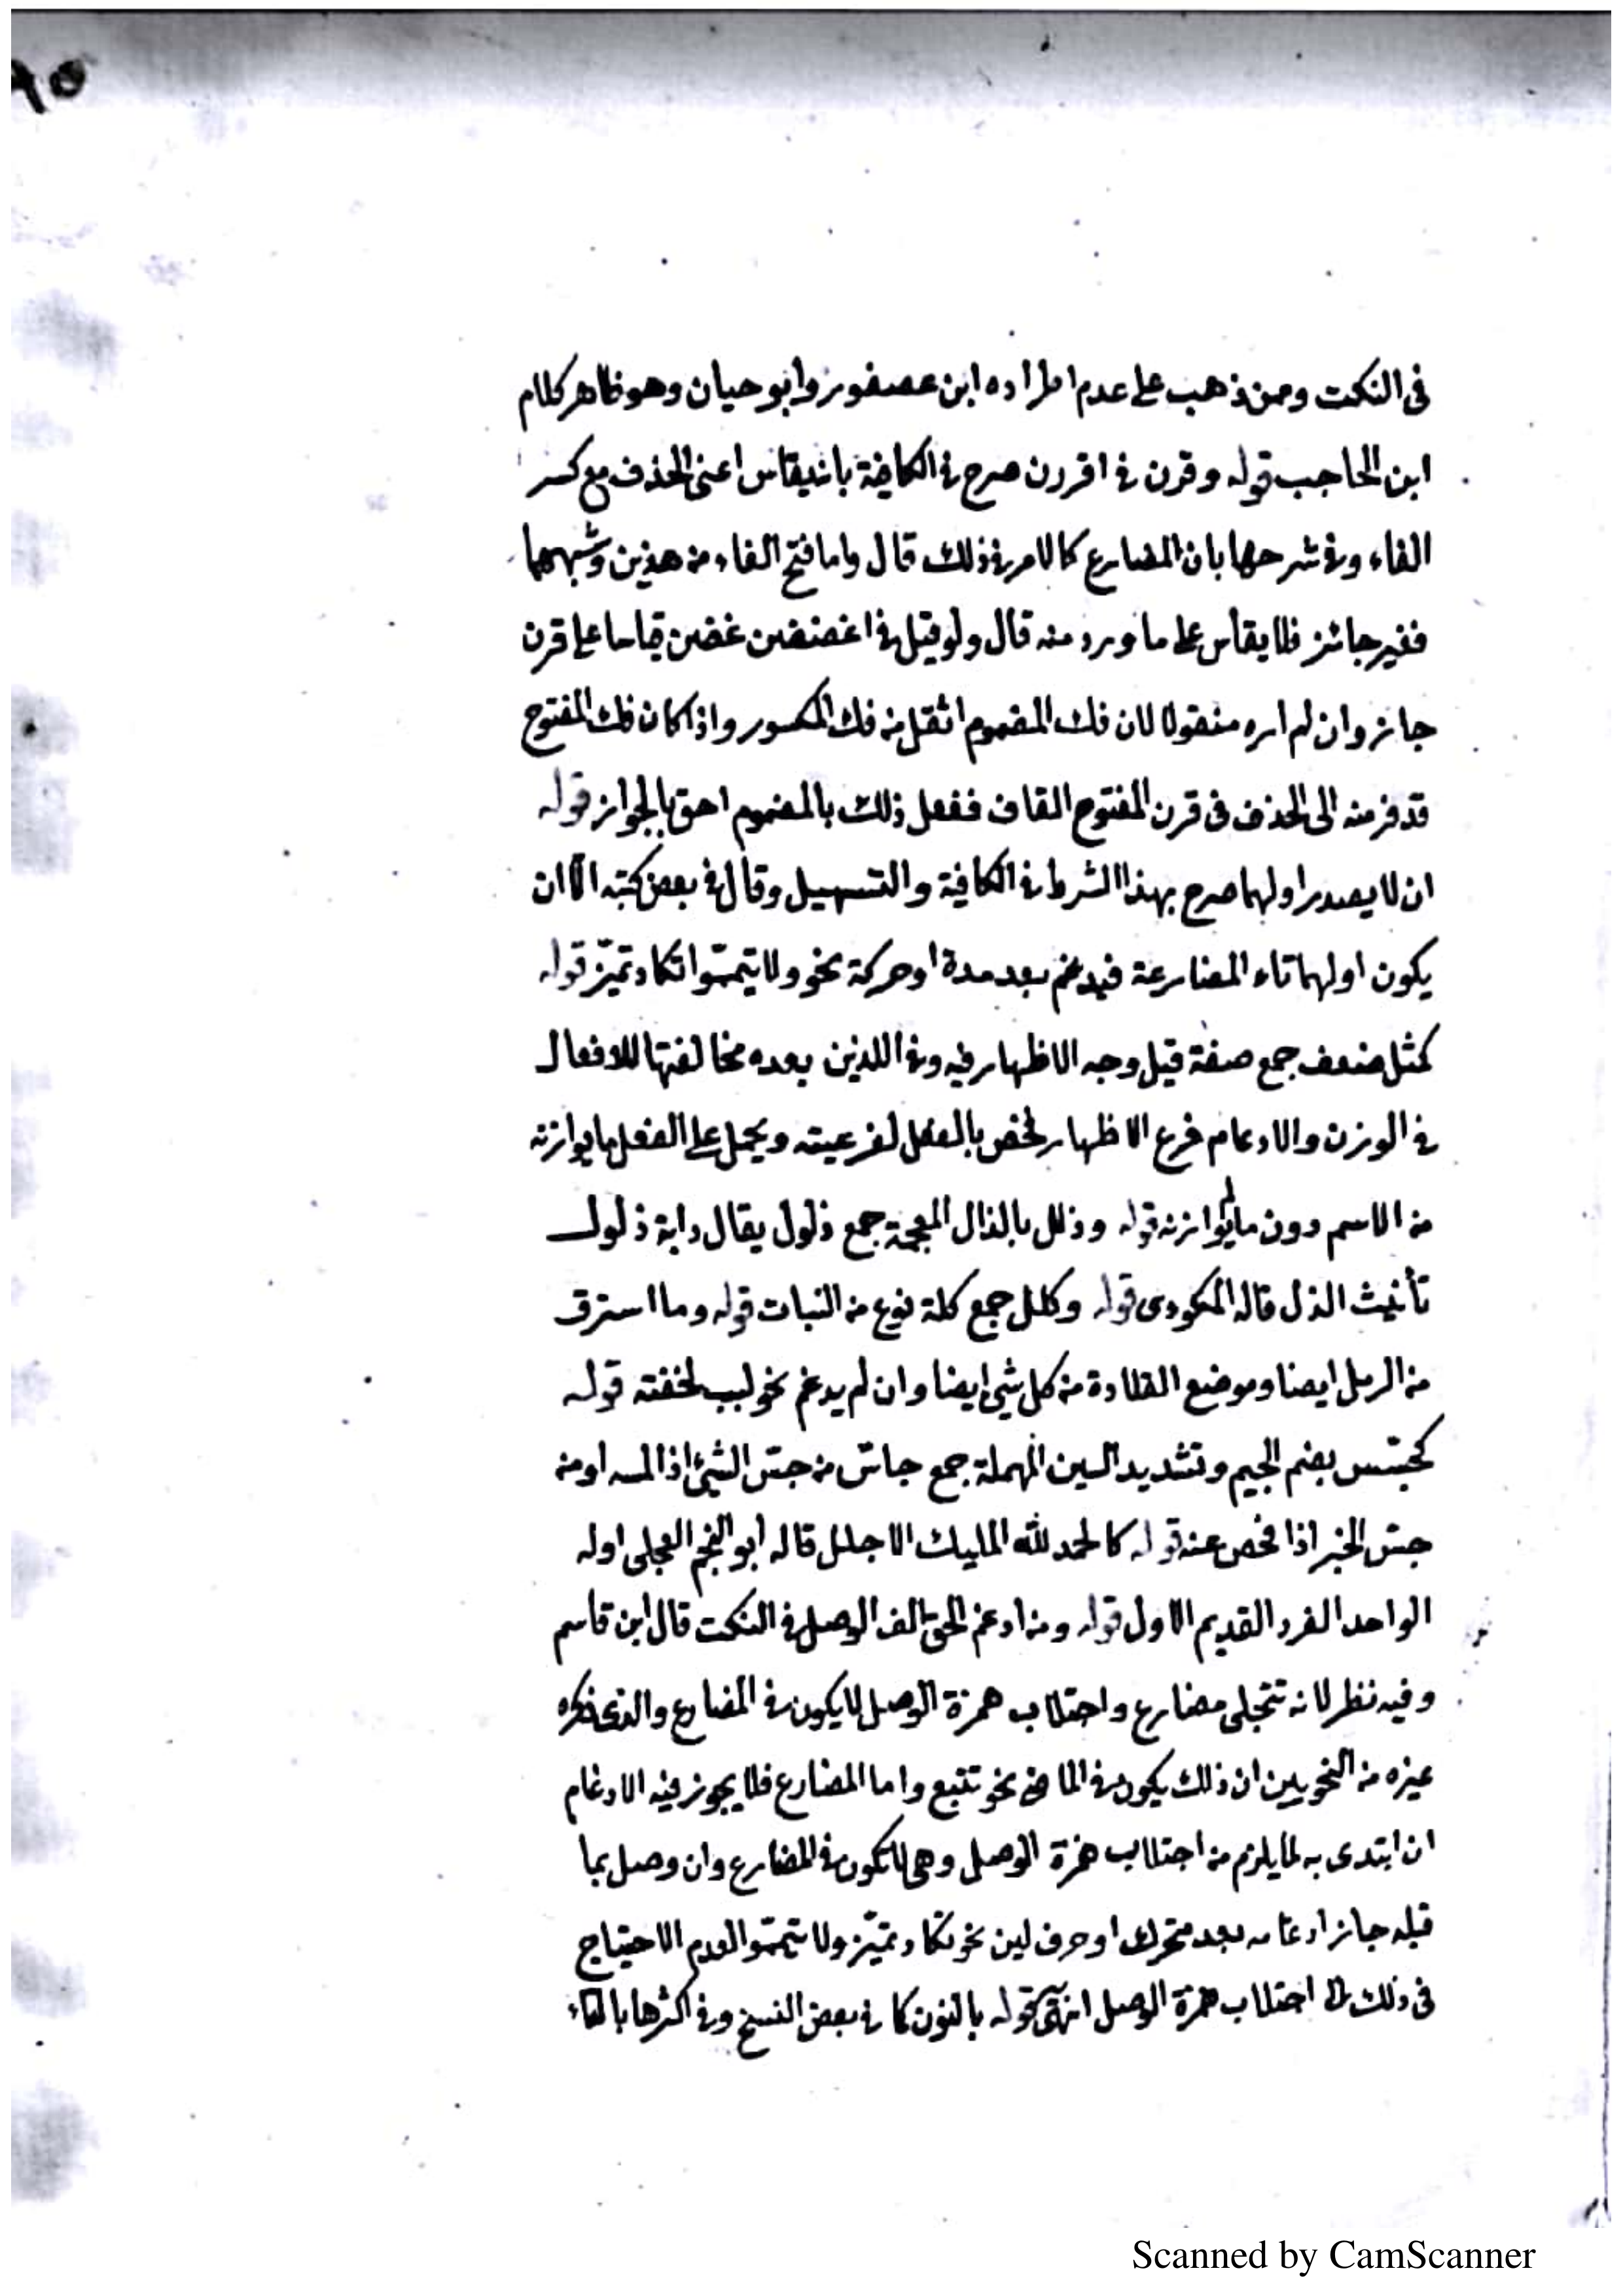 ٩٥
فى النكت وممن ذهب على عدم اطراده ابن عصفور وابو حيان وهو ظاهر كلام
ابن الحاجب قوله وقرن فى اقررن صرح فى الكافية بانه يقاس اعنى الحذف مع كسر
الفاء وفى شرحها بان المضارع كالامر فى ذلك قال واما فتح الفاء من هذين وشبههما
فغير جائز فلا يقاس على ما ورد منه قال ولو قيل فى اغضضن غضن قياسا على قرن
جاز وان لم اره منقولا لان فك المضموم اثقل من فك المكسور واذا كان فك المفتوح
قد فر منه الى الحذف فى قرن المفتوح القاف ففعل ذلك بالمضموم احق بالجواز قوله
ان لا يصدر اولهما صرح بهذا الشرط فى الكافية والتسهيل وقال فى بعض كتبه الا ان
يكون اولهما تاء المضارعة فيدغم بعد مدة او حركة نحو ولا تيمموا تكاد تميز قوله
كمثل ضعف جمع صفة قيل وجه الاظهار فيه وفى اللذين بعده مخالفتها للافعال
فى الوزن والادغام فرع الاظهار فخص بالفعل لفرعيته ويحمل على الفعل ما يوازنه
من الاسم دون ما لم يوازنه قوله وذلل بالذال المعجمة جمع ذلول يقال دابة ذلول
تأنيث الذل قاله المكودى قوله وكلل جمع كلة نوع من النبات قوله وما استرق
من الرمل ايضا وموضع القلادة من كل شيئ ايضا وان لم يدغم نحو لبب لخفته قوله
كجسس بضم الجيم وتشديد السين المهملة جمع جاس من جس الشيئ اذا لمسه او من
جس الخبر اذا فحص عنه قوله كالحمد لله المليك الاجلل قاله ابو النجم العجلى اوله
الواحد الفرد القديم الاول قوله ومن ادغم الحق الف الوصل فى النكت قال ابن قاسم
وفيه نظر لانه تتجلى مضارع واجتلاب همزة الوصل لا يكون فى المضارع والذى ذكره
غيره من النحويين ان ذلك يكون فى الماضى نحو تتبع واما المضارع فلا يجوز فيه الادغام
ان ابتدى به لما يلزم من اجتلاب همزة الوصل وهى لا تكون فى المضارع وان وصل بما
قبله جاز ادغامه بعد متحرك او حرف لين نحو تكاد تميز ولا تيمموا لعدم الاحتياج
فى ذلك الى اجتلاب همزة الوصل انتهى قوله بالنون كما فى بعض النسخ وفى اكثرها بالتاء
Scanned by CamScanner